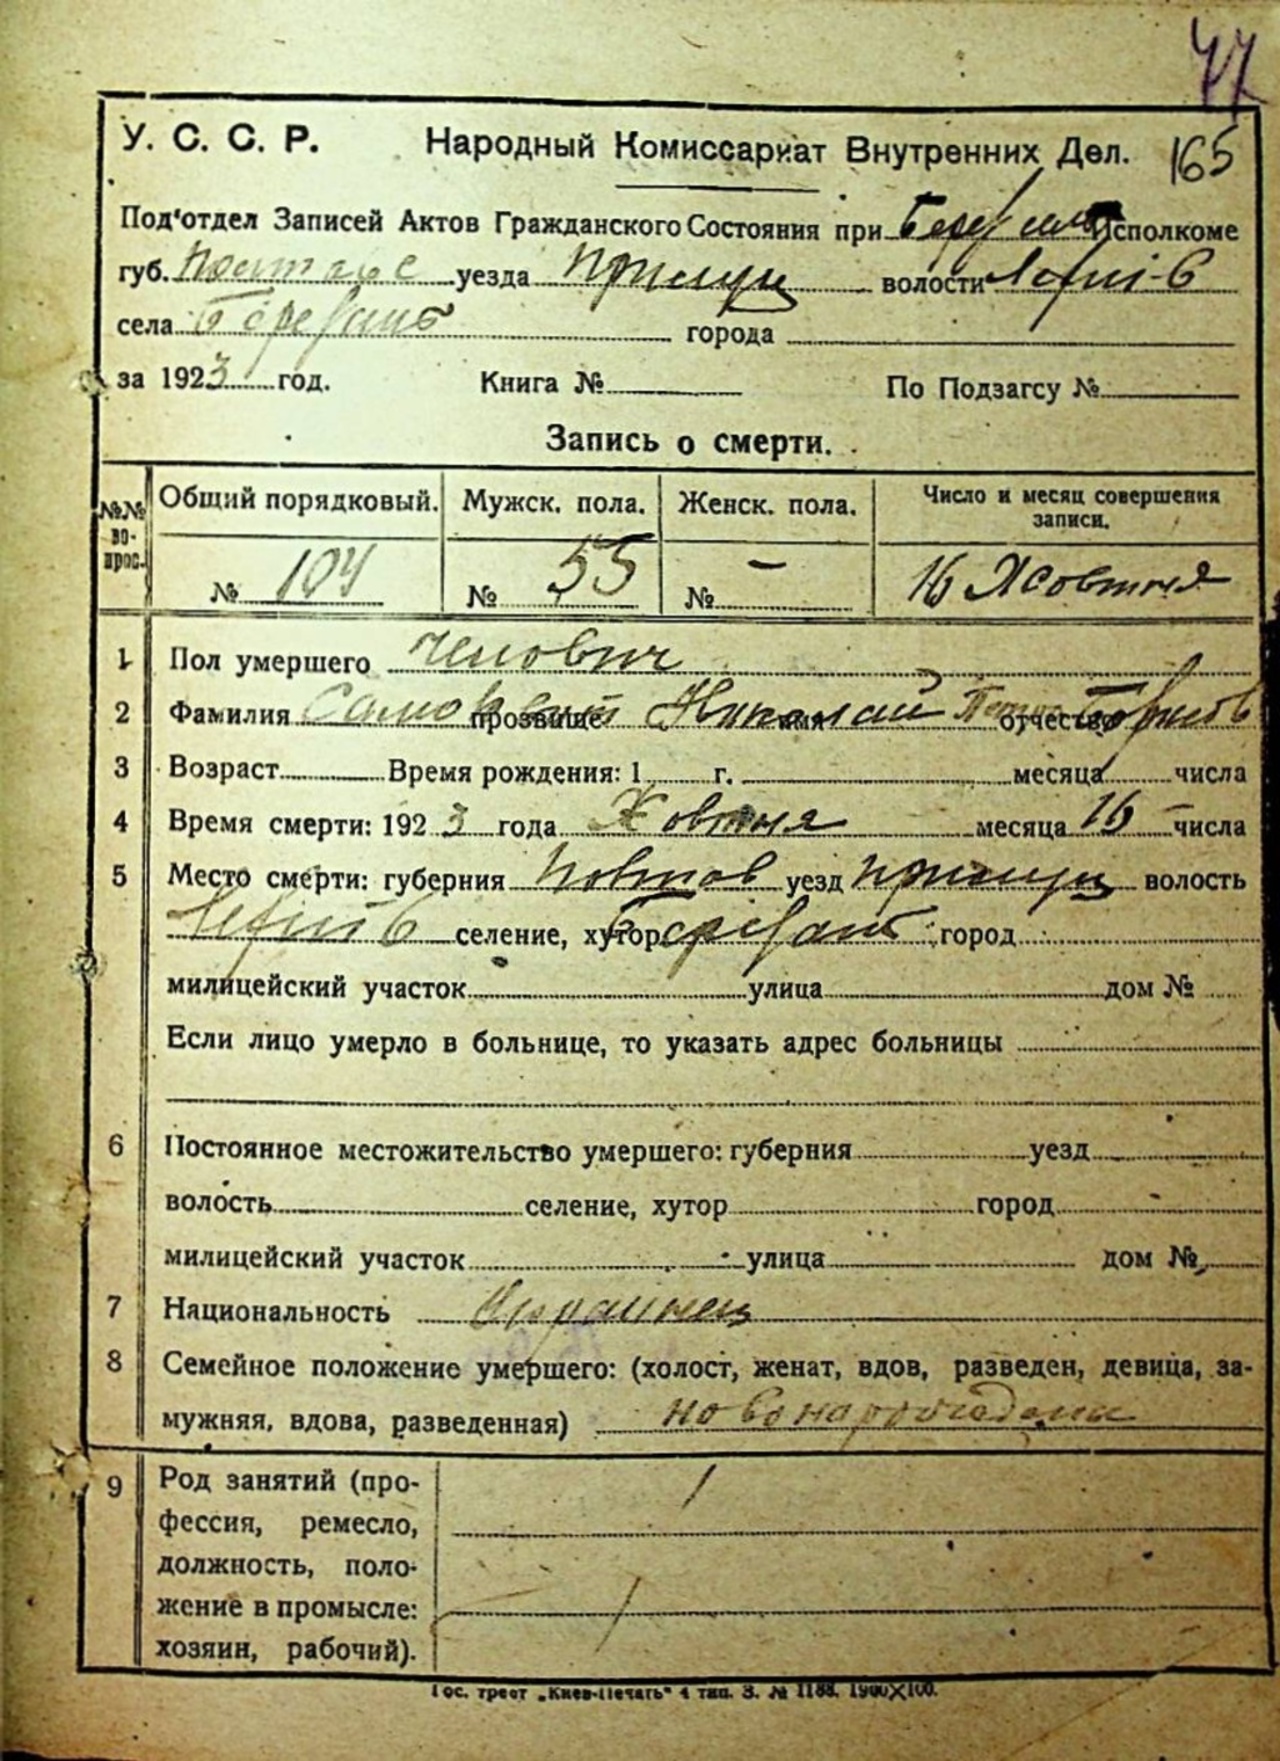 47
У. С. С. Р. Народный Комиссариат Внутренних Дел. 165
Под'отдел Записей Актов Гражданского Состояния при Исполкоме
губ. уезда Прилуц волости
села города
за 1923 год. Книга № По Подзагсу №
Запись о смерти.
№№ во-прос. Общий порядковый. Мужск. пола. Женск. пола. Число и месяц совершения записи.
№ 104 № 55 № - 16 Жовтня
1 Пол умершего чоловіч
2 Фамилия прозвище Николай имя отчество
3 Возраст Время рождения: 1 г. месяца числа
4 Время смерти: 1923 года Жовтня месяца 16 числа
5 Место смерти: губерния Полтав уезд Прилуц волость
селение, хутор город
милицейский участок улица дом №
Если лицо умерло в больнице, то указать адрес больницы
6 Постоянное местожительство умершего: губерния уезд
волость селение, хутор город
милицейский участок улица дом №
7 Национальность Украинец
8 Семейное положение умершего: (холост, женат, вдов, разведен, девица, за-
мужняя, вдова, разведенная)
9 Род занятий (про-
фессия, ремесло,
должность, поло-
жение в промысле:
хозяин, рабочий).
Гос. трест „Киев-Печать" 4 тип. З. № 1188. 1900×100.